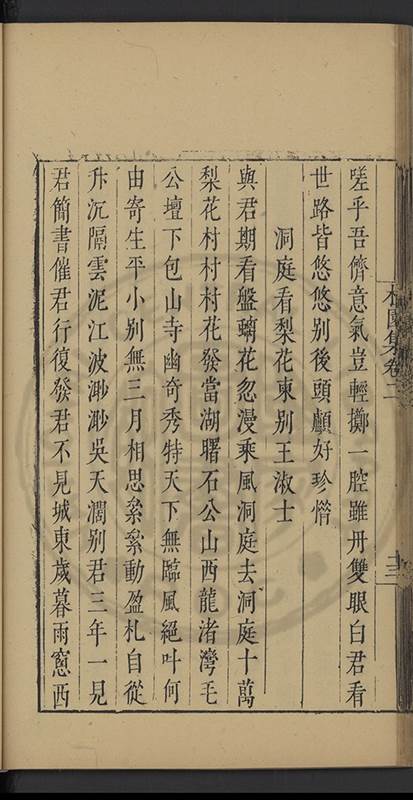 嗟乎吾儕意氣豈輕擲一腔雖丹雙眼白君看
世路皆悠悠別後頭顱好珍惜
洞庭看梨花柬別王淑士
與君期看盤螭花忽漫乘風洞庭去洞庭十萬
梨花村村村花發當湖曙石公山西龍渚灣毛
公壇下包山寺幽奇秀特天下無臨風絕叫何
由寄生平小別無三月相思纍纍動盈札自從
升沉隔雲泥江波渺渺吳天濶別君三年一見
君簡書催君行復發君不見城東歲暮雨窻西
集卷二
十三